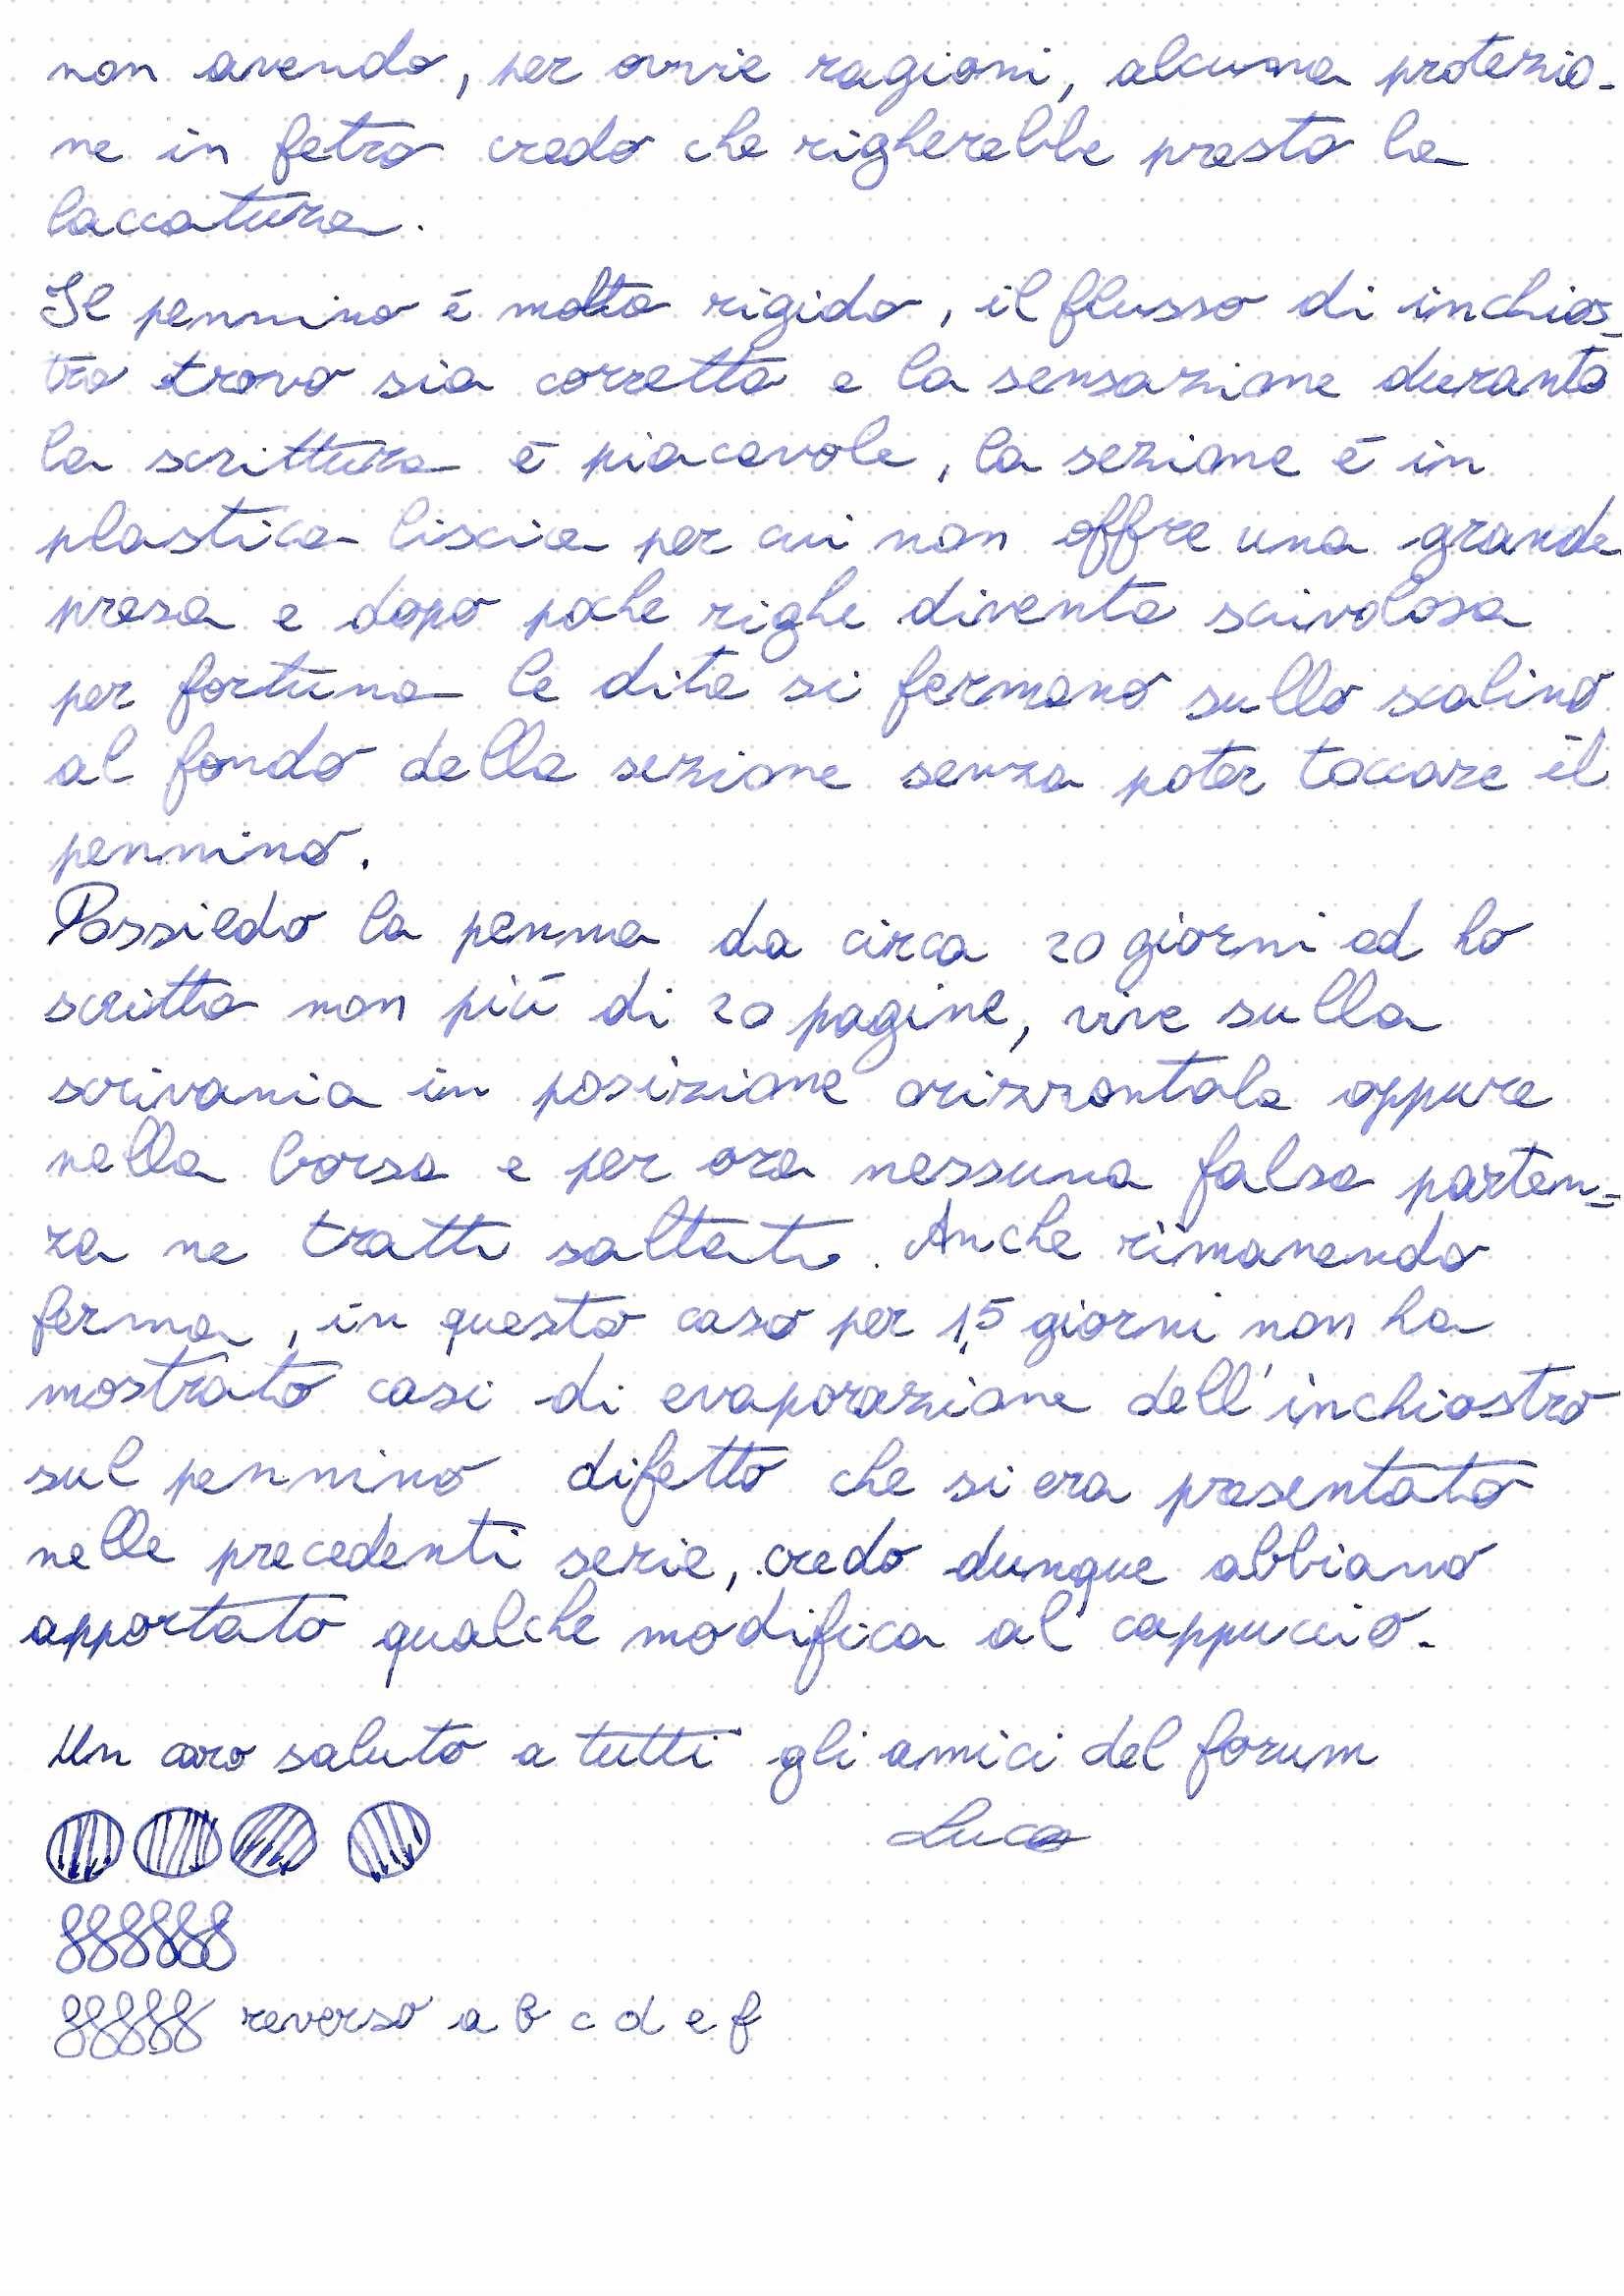 non avendo, per ovvie ragioni, alcuna protezio-
ne in feltro credo che righerebbe presto la
laccatura.
Il pennino è molto rigido, il flusso di inchios-
tro trovo sia corretto e la sensazione durante
la scrittura è piacevole, la sezione è in
plastica liscia per cui non offre una grande
presa e dopo poche righe diventa scivolosa
per fortuna le dita si fermano sullo scalino
al fondo della sezione senza poter toccare il
pennino.
Possiedo la penna da circa 20 giorni ed ho
scritto non più di 20 pagine, vive sulla
scrivania in posizione orizzontale oppure
nella borsa e per ora nessuna falsa parten=
za ne tratti saltati. Anche rimanendo
ferma, in questo caso per 1,5 giorni non ha
mostrato casi di evaporazione dell'inchiostro
sul pennino difetto che si era presentato
nelle precedenti serie, credo dunque abbiano
apportato qualche modifica al cappuccio.
Un caro saluto a tutti gli amici del forum
Luca
reverso a b c d e f